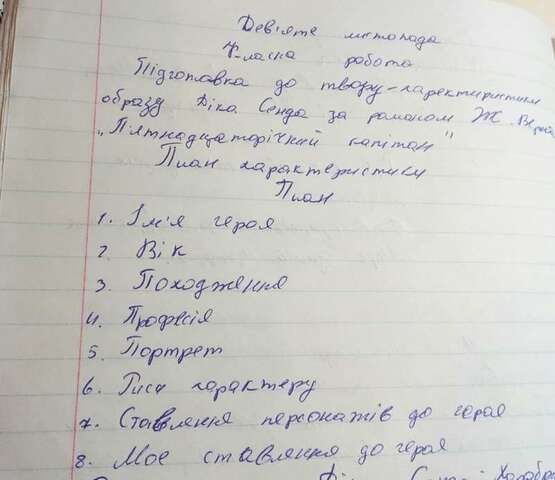 Дев'яте листопада
Класна робота
Підготовка до твору-характеристики
образу Діка Сенда за романом Ж. Верна
„П'ятнадцятирічний капітан"
План характеристики
План
1. Ім'я героя
2. Вік
3. Походження
4. Професія
5. Портрет
6. Риси характеру
7. Ставлення персонажів до героя
8. Моє ставлення до героя